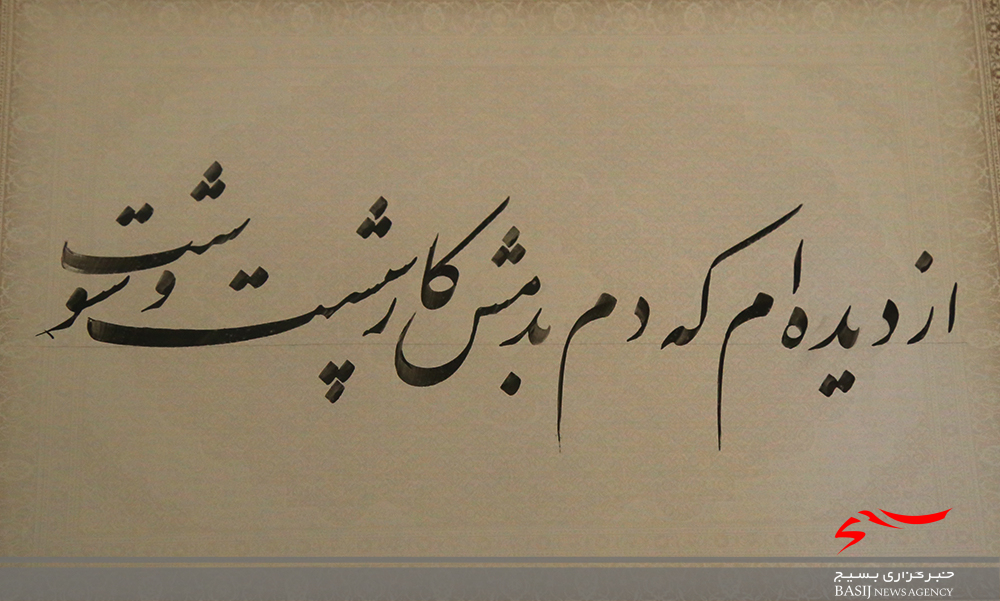 از دیده ام که دم بدمش کار شست و شوست
خبرگزاری بسیج
BASIJ NEWS AGENCY